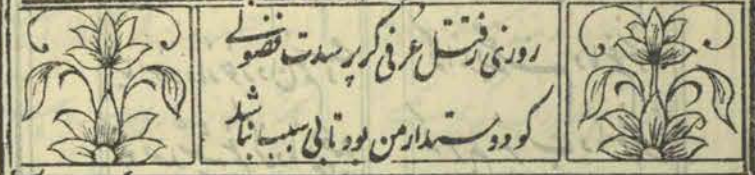 روزی ز قتل عرفی گر پرسدت فضولی
کو دوستدار من بود تا بی سبب نباشد